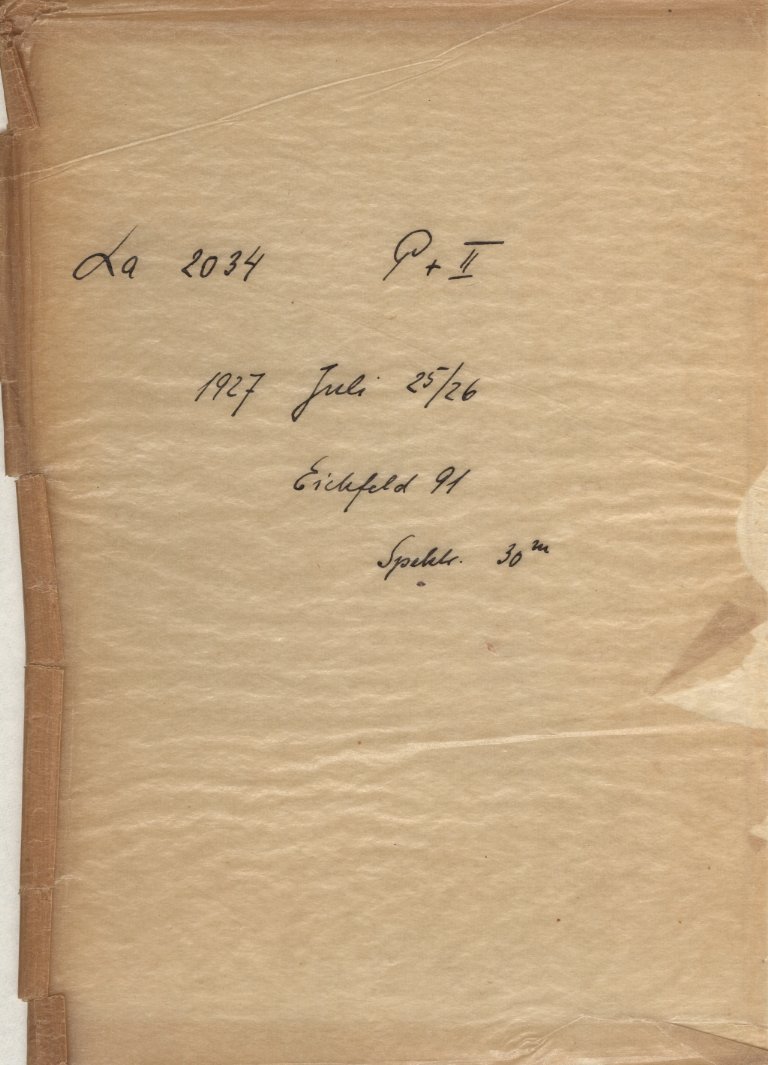 La 2034 P + II
1927 Juli 25/26
Eichfeld 91
Spektr. 30m